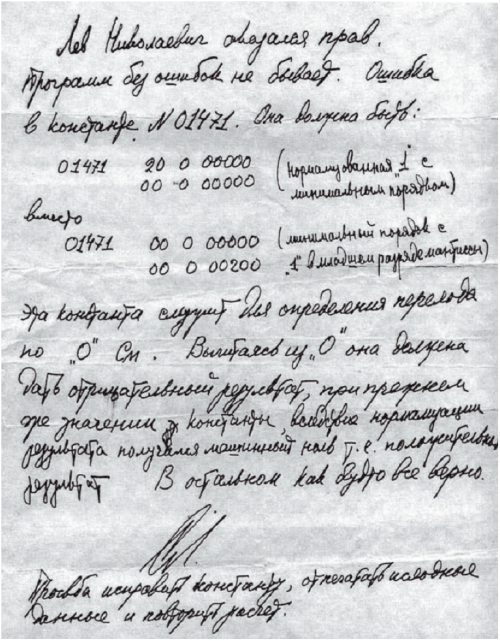 Лев Николаевич оказался прав.
Программ без ошибок не бывает. Ошибка
в константе N 01471. Она должна быть:
01471 20 0 00000 (нормализованная "1" с
00 0 00000 минимальным порядком)
вместо
01471 00 0 00000 (минимальный порядок с
00 0 00200 "1" в младшем разряде мантиссы)
Эта константа служит для определения перехода
по "0" См. Вычитаясь из "0" она должна
дать отрицательный результат, при прежнем
же значении константы, вследствие нормализации
результата получался машинный ноль т.е. положительный
результат В остальном как будто все верно.
Просьба исправить константу, отпечатать исходные
данные и повторить расчет.